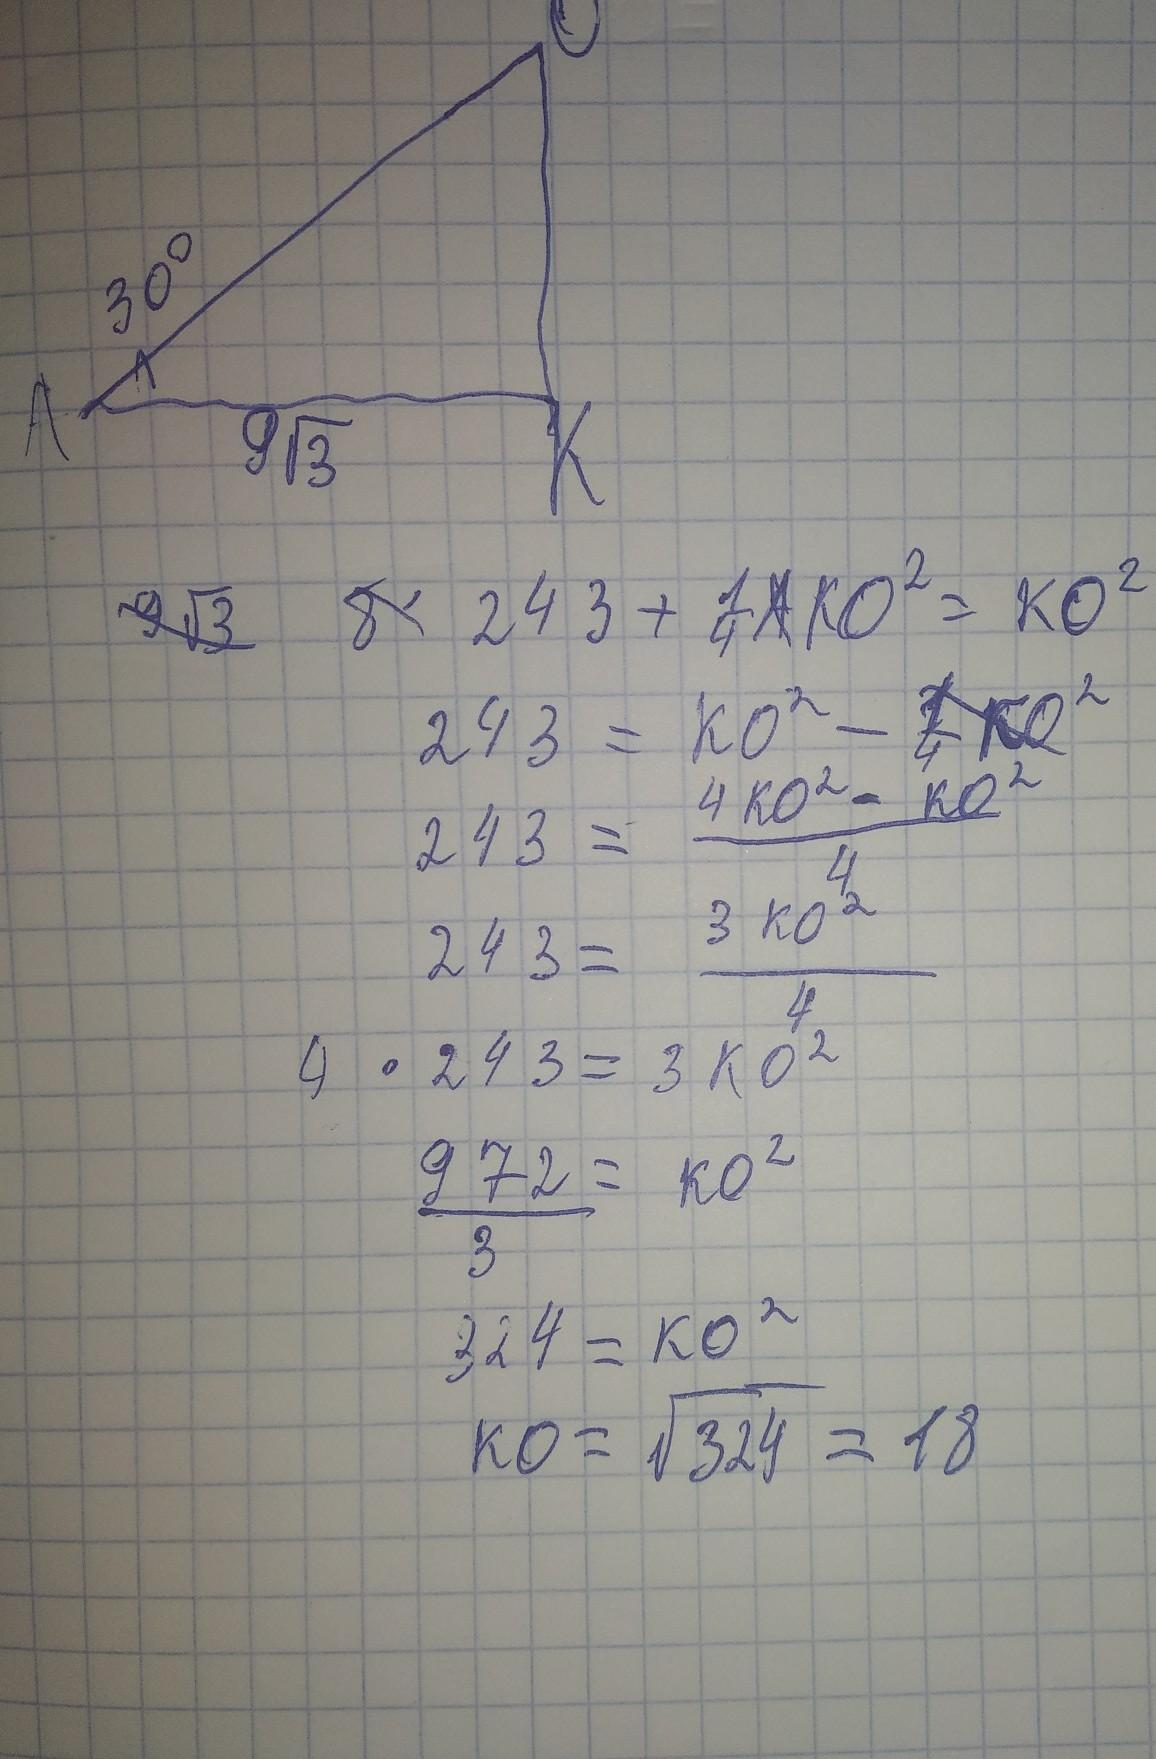 O
30°
A
9√3
K
9√3 8 243 + 1/4 KO² = KO²
243 = KO² - 1/4 KO²
243 = (4KO² - KO²)/4
243 = 3KO²/4
4 · 243 = 3KO²
972/3 = KO²
324 = KO²
KO = √324 = 18